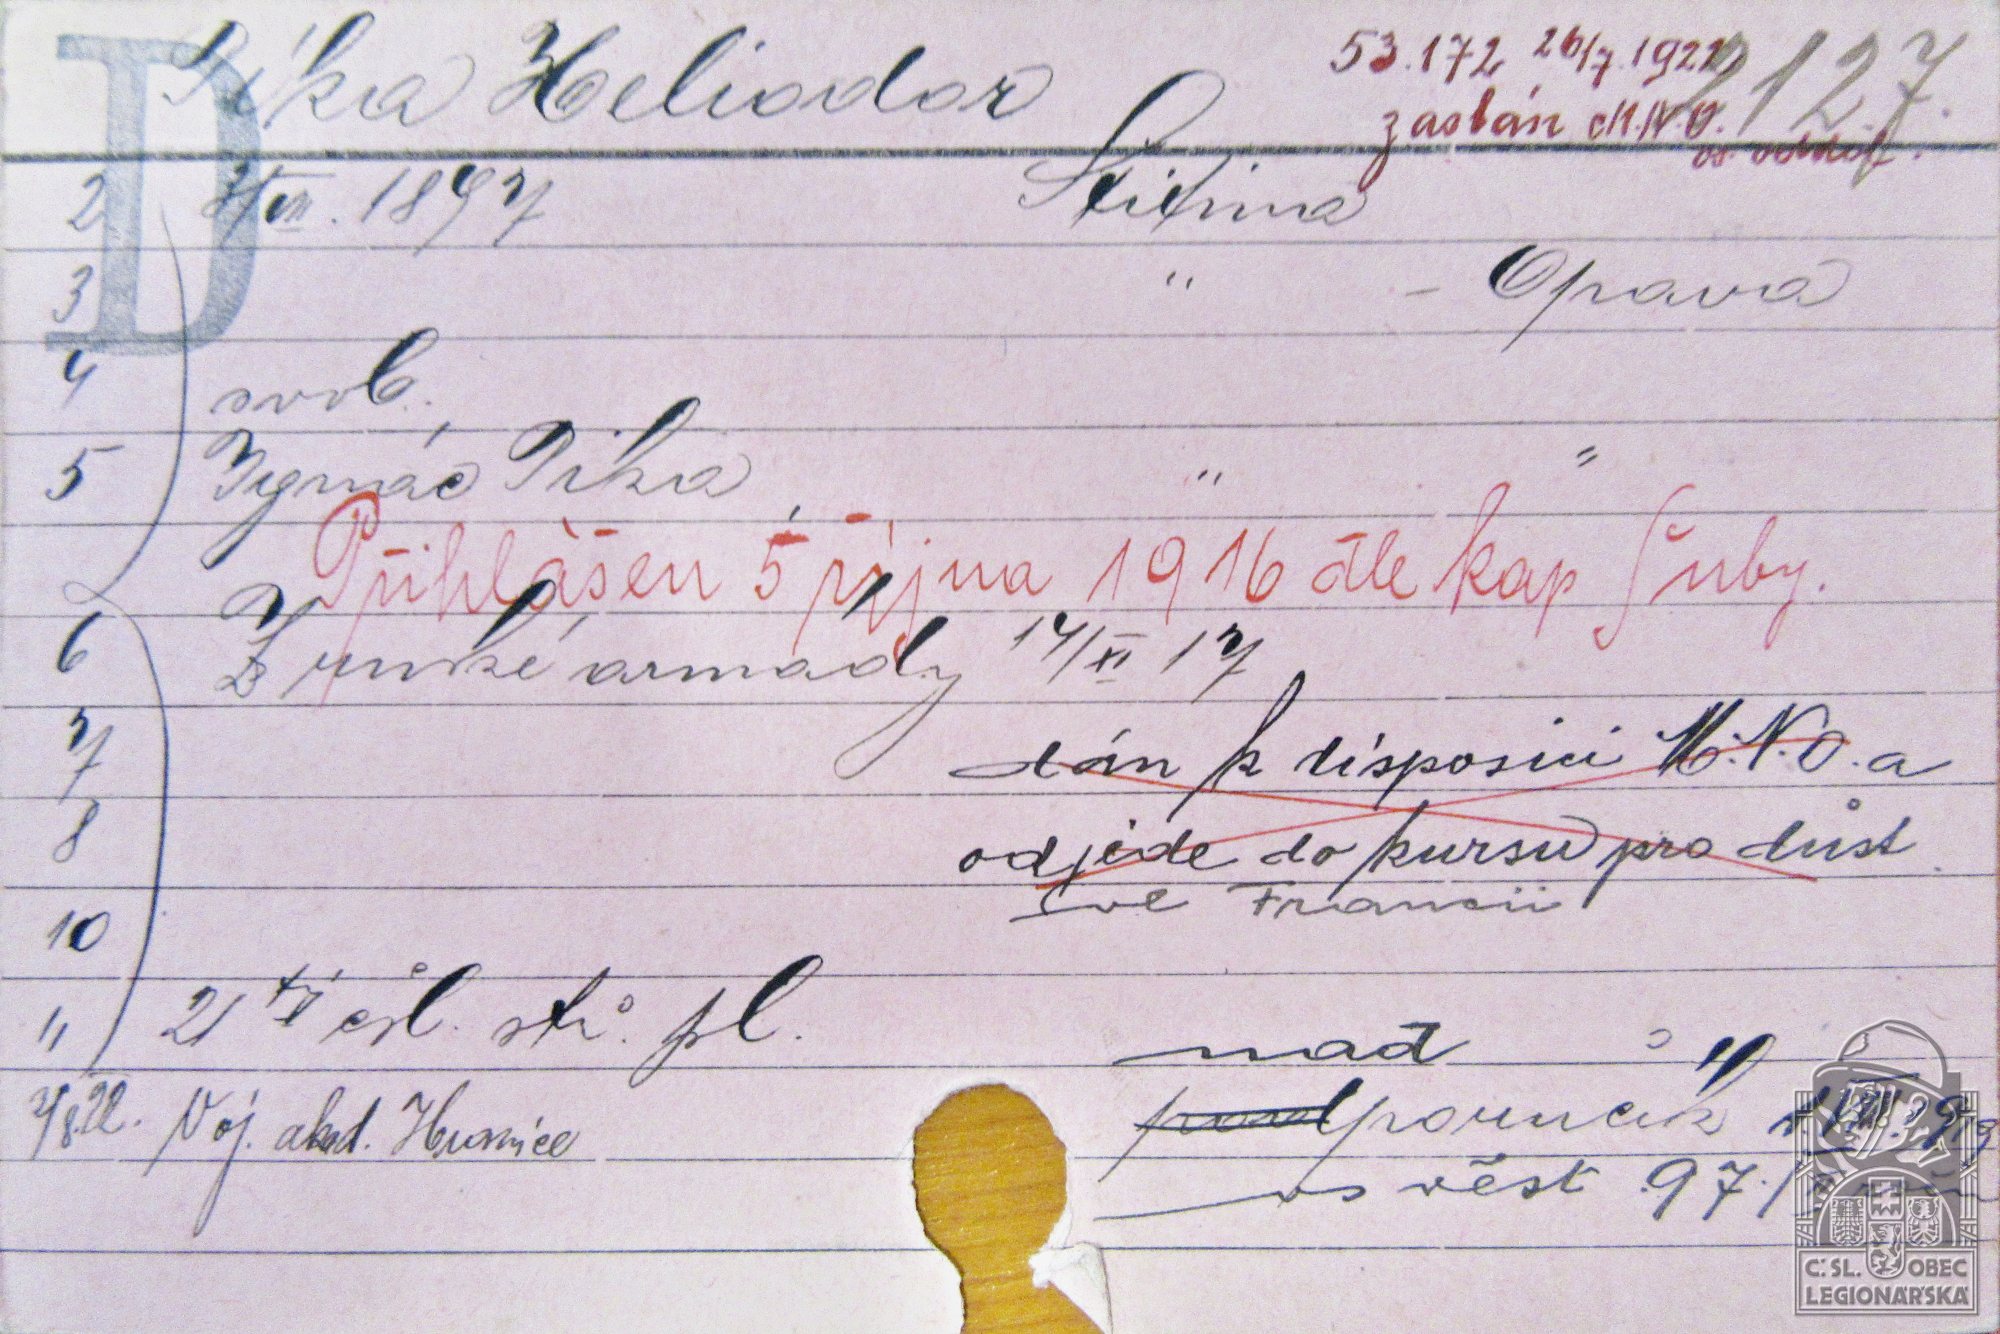 D
Píka Heliodor
53.172 26/7.1922
2127.
zaslán M.N.O.
os. odděl.
2 3/VII. 1897 Štítina
3 " - Opava
4 svob.
5 Ignác Píka " "
Přihlášen 5 října 1916 dle kap Šuby.
6 Z ruské armády 14/XI 17
7 dán k disposici M.N.O. a
8 odjede do kursu pro důst
ve Francii
10
11 21 čsl. stř. pl.
nad
7/8.22. Voj. akad. Hranice
poručík
věst 97.
Č.SL. OBEC
LEGIONÁŘSKÁ